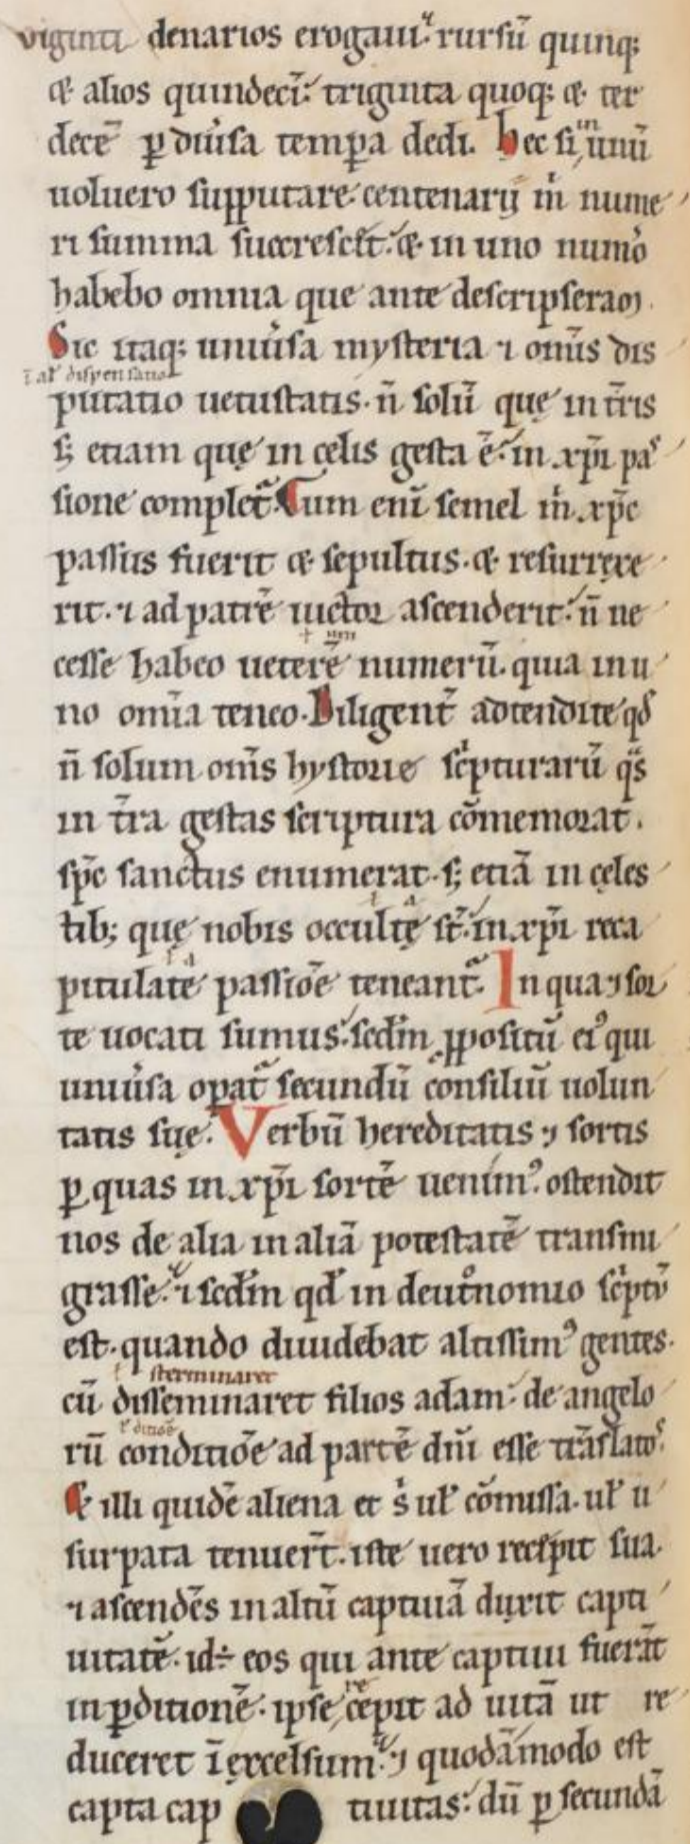 viginti denarios erogaui. rursū quinq;
& alios quindecī. triginta quoq; & ter
decē ꝑ diūsa temꝑa dedi. hec si in unū
uoluero supputare. centenarij m̄ nume
ri summa succrescit. & in uno numo
habebo omnia que ante descripseram.
Sic itaq; uniūsa mysteria ⁊ om̄is dis
ł al' dispensatio
putatio uetustatis. n̄ solū quę in t̄ris
s; etiam quę in cęlis gesta ē. in xp̄i pas
sione complet̄. Cum eni semel m̄ xp̄c
passus fuerit & sepultus. & resurrexe
rit. ⁊ ad patrē uictor ascenderit. n̄ ne
cesse habeo ueterē numerū. quia in u
no om̄ia teneo. Diligent̄ adtendite qd̄
n̄ solum om̄s hystorie sc̄pturarū q̄s
in t̄ra gestas scriptura cōmemorat.
sp̄c sanctus enumerat. s; etiā in cęles
tib; quę nobis occultę st̄. in xp̄i reca
pitulatē passiōe teneant̄. In qua ⁊ sor
te uocati sumus. scd̄m ꝓpositū ei⁹ qui
uniūsa oꝑat̄ secundū consiliū uolun
tatis suę. Verbū hereditatis ⁊ sortis
ꝑ quas in xp̄i sortē uenim⁹. ostendit
nos de alia in aliā potestatē transmi
grasse. ⁊ scd̄m qd̄ in deut̄nomio sc̄ptū
est. quando diuidebat altissim⁹ gentes.
ł sterminaret
cū disseminaret filios adam. de angelo
ł ditiōe
rū conditiōe ad partē dn̄i esse trāslatos.
& illi quidē aliena et s̄ ul' cōmissa. ul' u
surpata tenuer̄t. iste uero recepit sua.
⁊ ascendēs in altū captiuā duxit capti
uitatē. id÷ eos qui ante captiui fuerāt
in ꝑditionē. ipse recepit ad uitā ut re
duceret ī excelsum. ⁊ quodāmodo est
capta cap tiuitas: dū ꝑ secundā